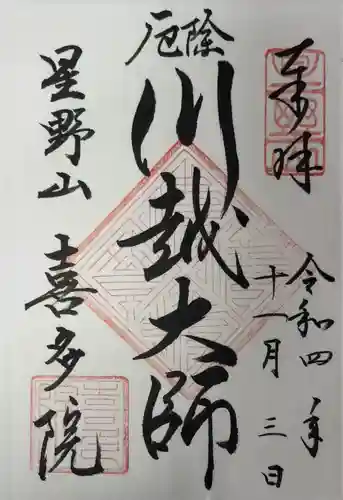 奉拝
令和四年
十一月三日
厄除
川越大師
星野山
喜多院